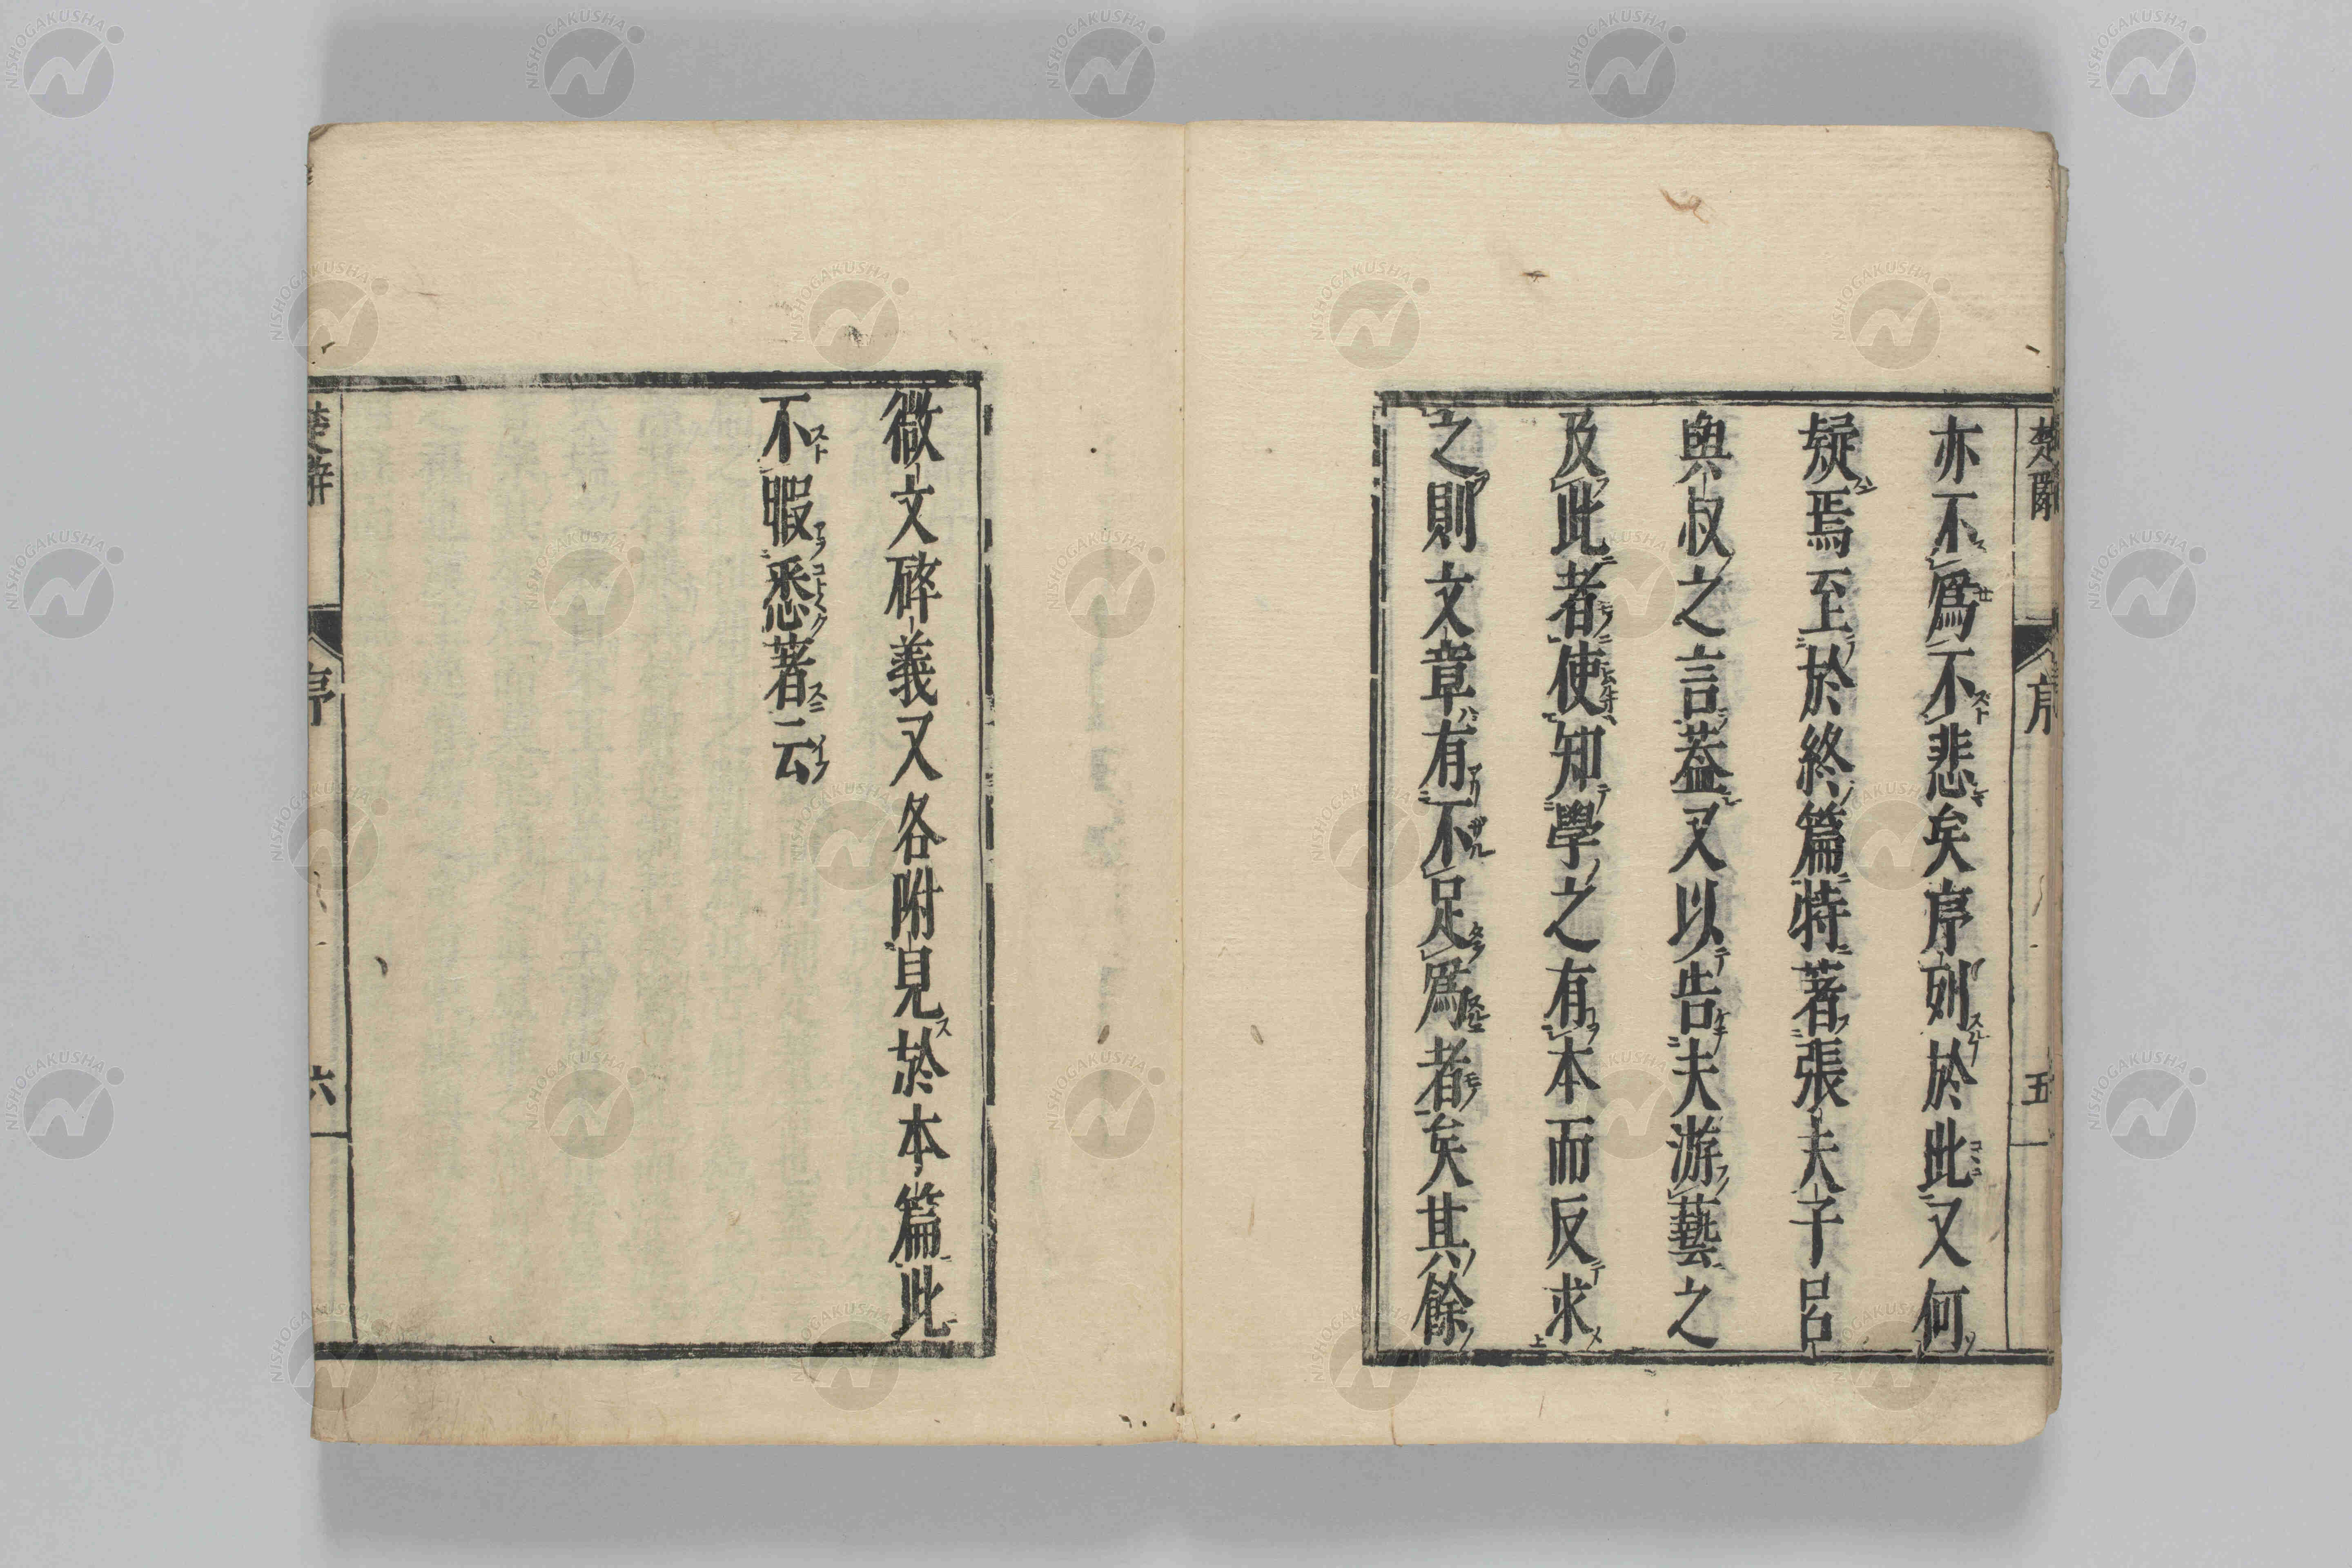 楚辭
序
五
亦不爲不悲矣序列於此又何
疑焉至於終篇特著張夫子呂
與叔之言葢又以告夫游藝之
及此者使知學之有本而反求
之則文章有不足爲者矣其餘
微文碎義又各附見於本篇此
不暇悉著云
楚辭
序
六
NISHOGAKUSHA